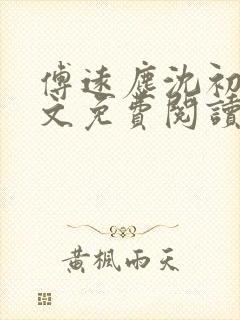 傅遠塵沈初
文免費閱讀
黃楓雨天